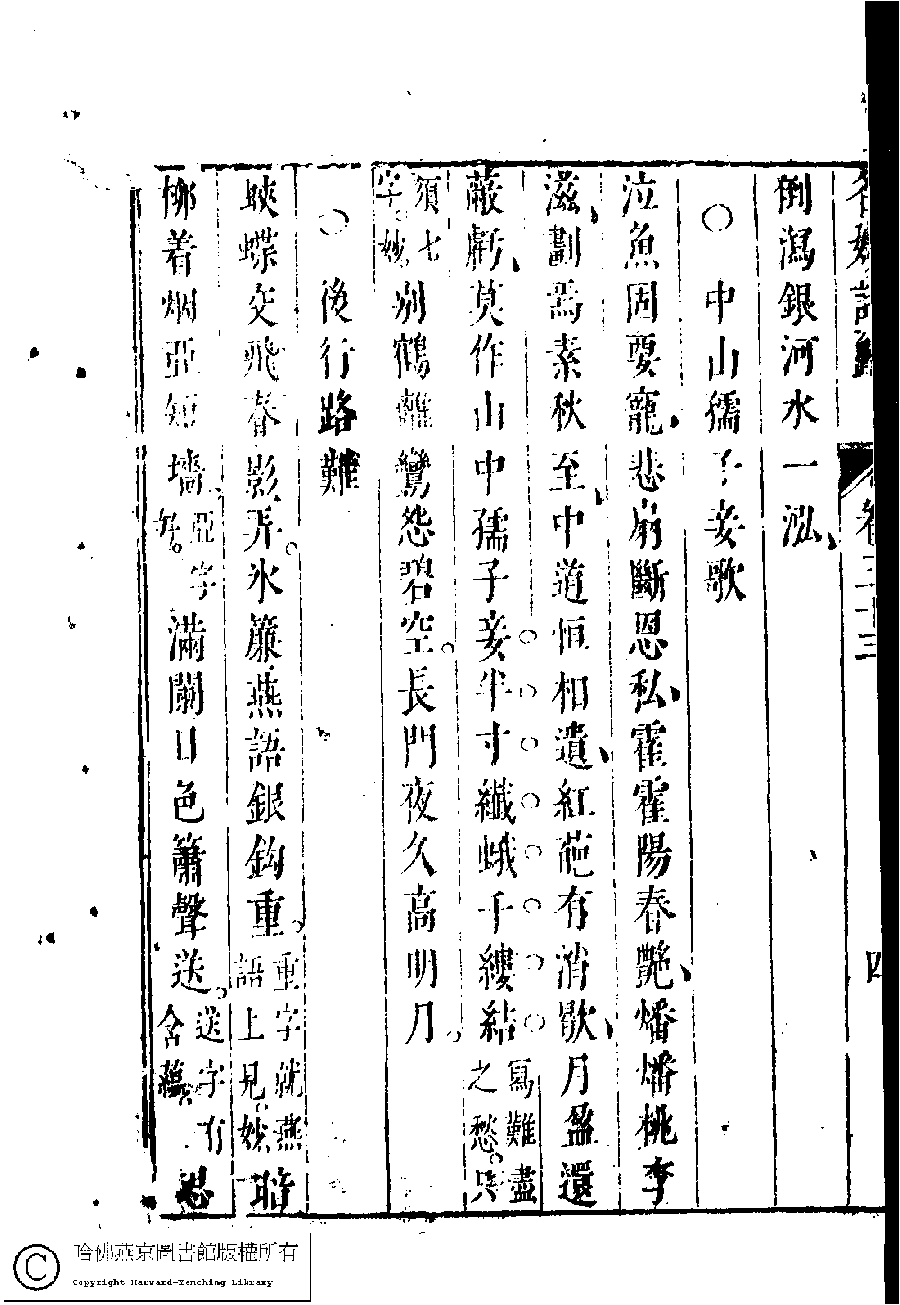 倒瀉銀河水一泓
○中山孺子妾歌
泣魚固要寵悲扇斷恩私霍霍陽春艷燔燔桃李
滋劃焉素秋至中道恒相遺紅葩有消歇月盈還
蔽虧莫作山中孺子妾半寸纖蛾千縷結寫難盡之愁只
須七字妙別鶴離鸞怨碧空長門夜久高明月
○後行路難
蛺蝶交飛春影弄氷簾燕語銀鈎重重字就燕語上見妙暗
柳着烟亞短墻亞字好滿關日色簫聲送送字有含蘊思
卷三十三
四
哈佛燕京圖書館版權所有
Copyright Harvard-Yenching Library